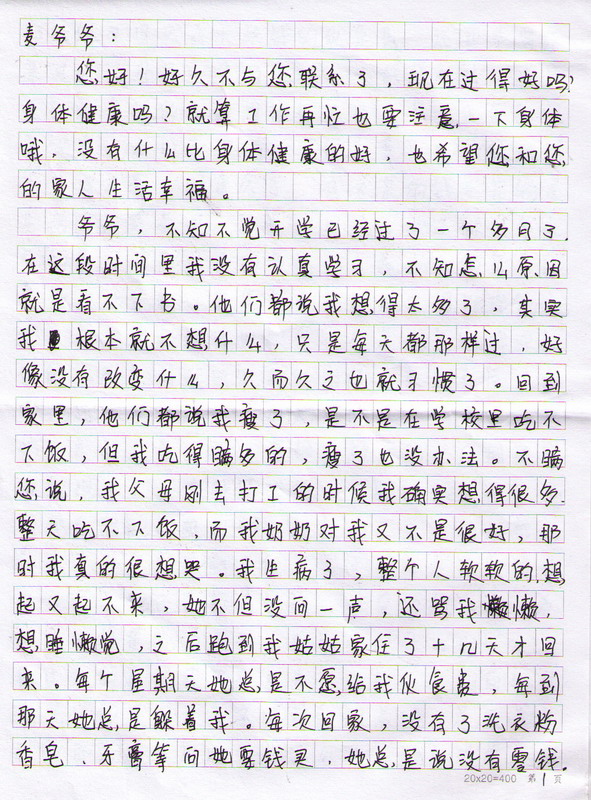 麦爷爷:
您好!好久不与您联系了,现在过得好吗?
身体健康吗?就算工作再忙也要注意一下身体
哦,没有什么比身体健康的好,也希望您和您
的家人生活幸福。
爷爷,不知不觉开学已经过了一个多月了.
在这段时间里我没有认真学习,不知怎么原因
就是看不下书。他们都说我想得太多了,其实
我根本就不想什么,只是每天都那样过,好
像没有改变什么,久而久之也就习惯了。回到
家里,他们都说我瘦了,是不是在学校里吃不
下饭,但我吃得蹒多的,瘦了也没办法。不瞒
您说,我父母刚去打工的时候我确实想得很多.
整天吃不下饭,而我奶奶对我又不是很好,那
时我真的很想哭。我生病了,整个人软软的,想
起又起不来,她不但没问一声,还骂我懒,
想睡懒觉,之后跑到我姑姑家住了十几天才回
来。每个星期天她总是不愿给我伙食费,每到
那天她总是躲着我。每次回家,没有了洗衣粉
香皂、牙膏等问她要钱买,她总是说没有零钱.
20x20=400 第1页